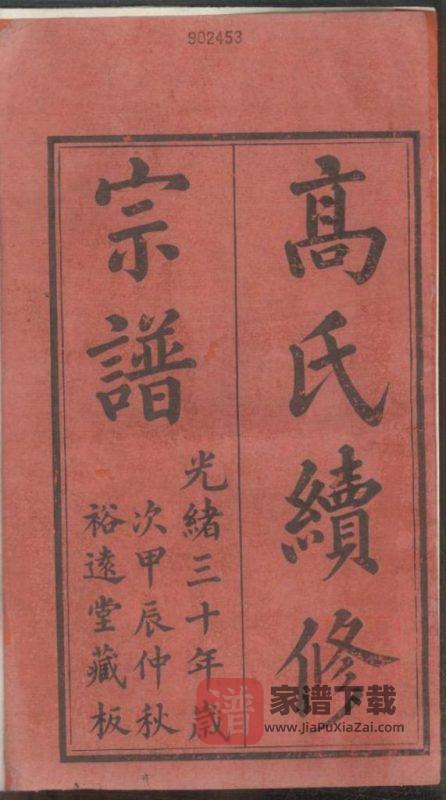 902453
髙氏續修
宗譜
光緒三十年嵗
次甲辰仲秋
裕遠堂藏板
譜
家谱下载
www.JiaPuXiaZai.com